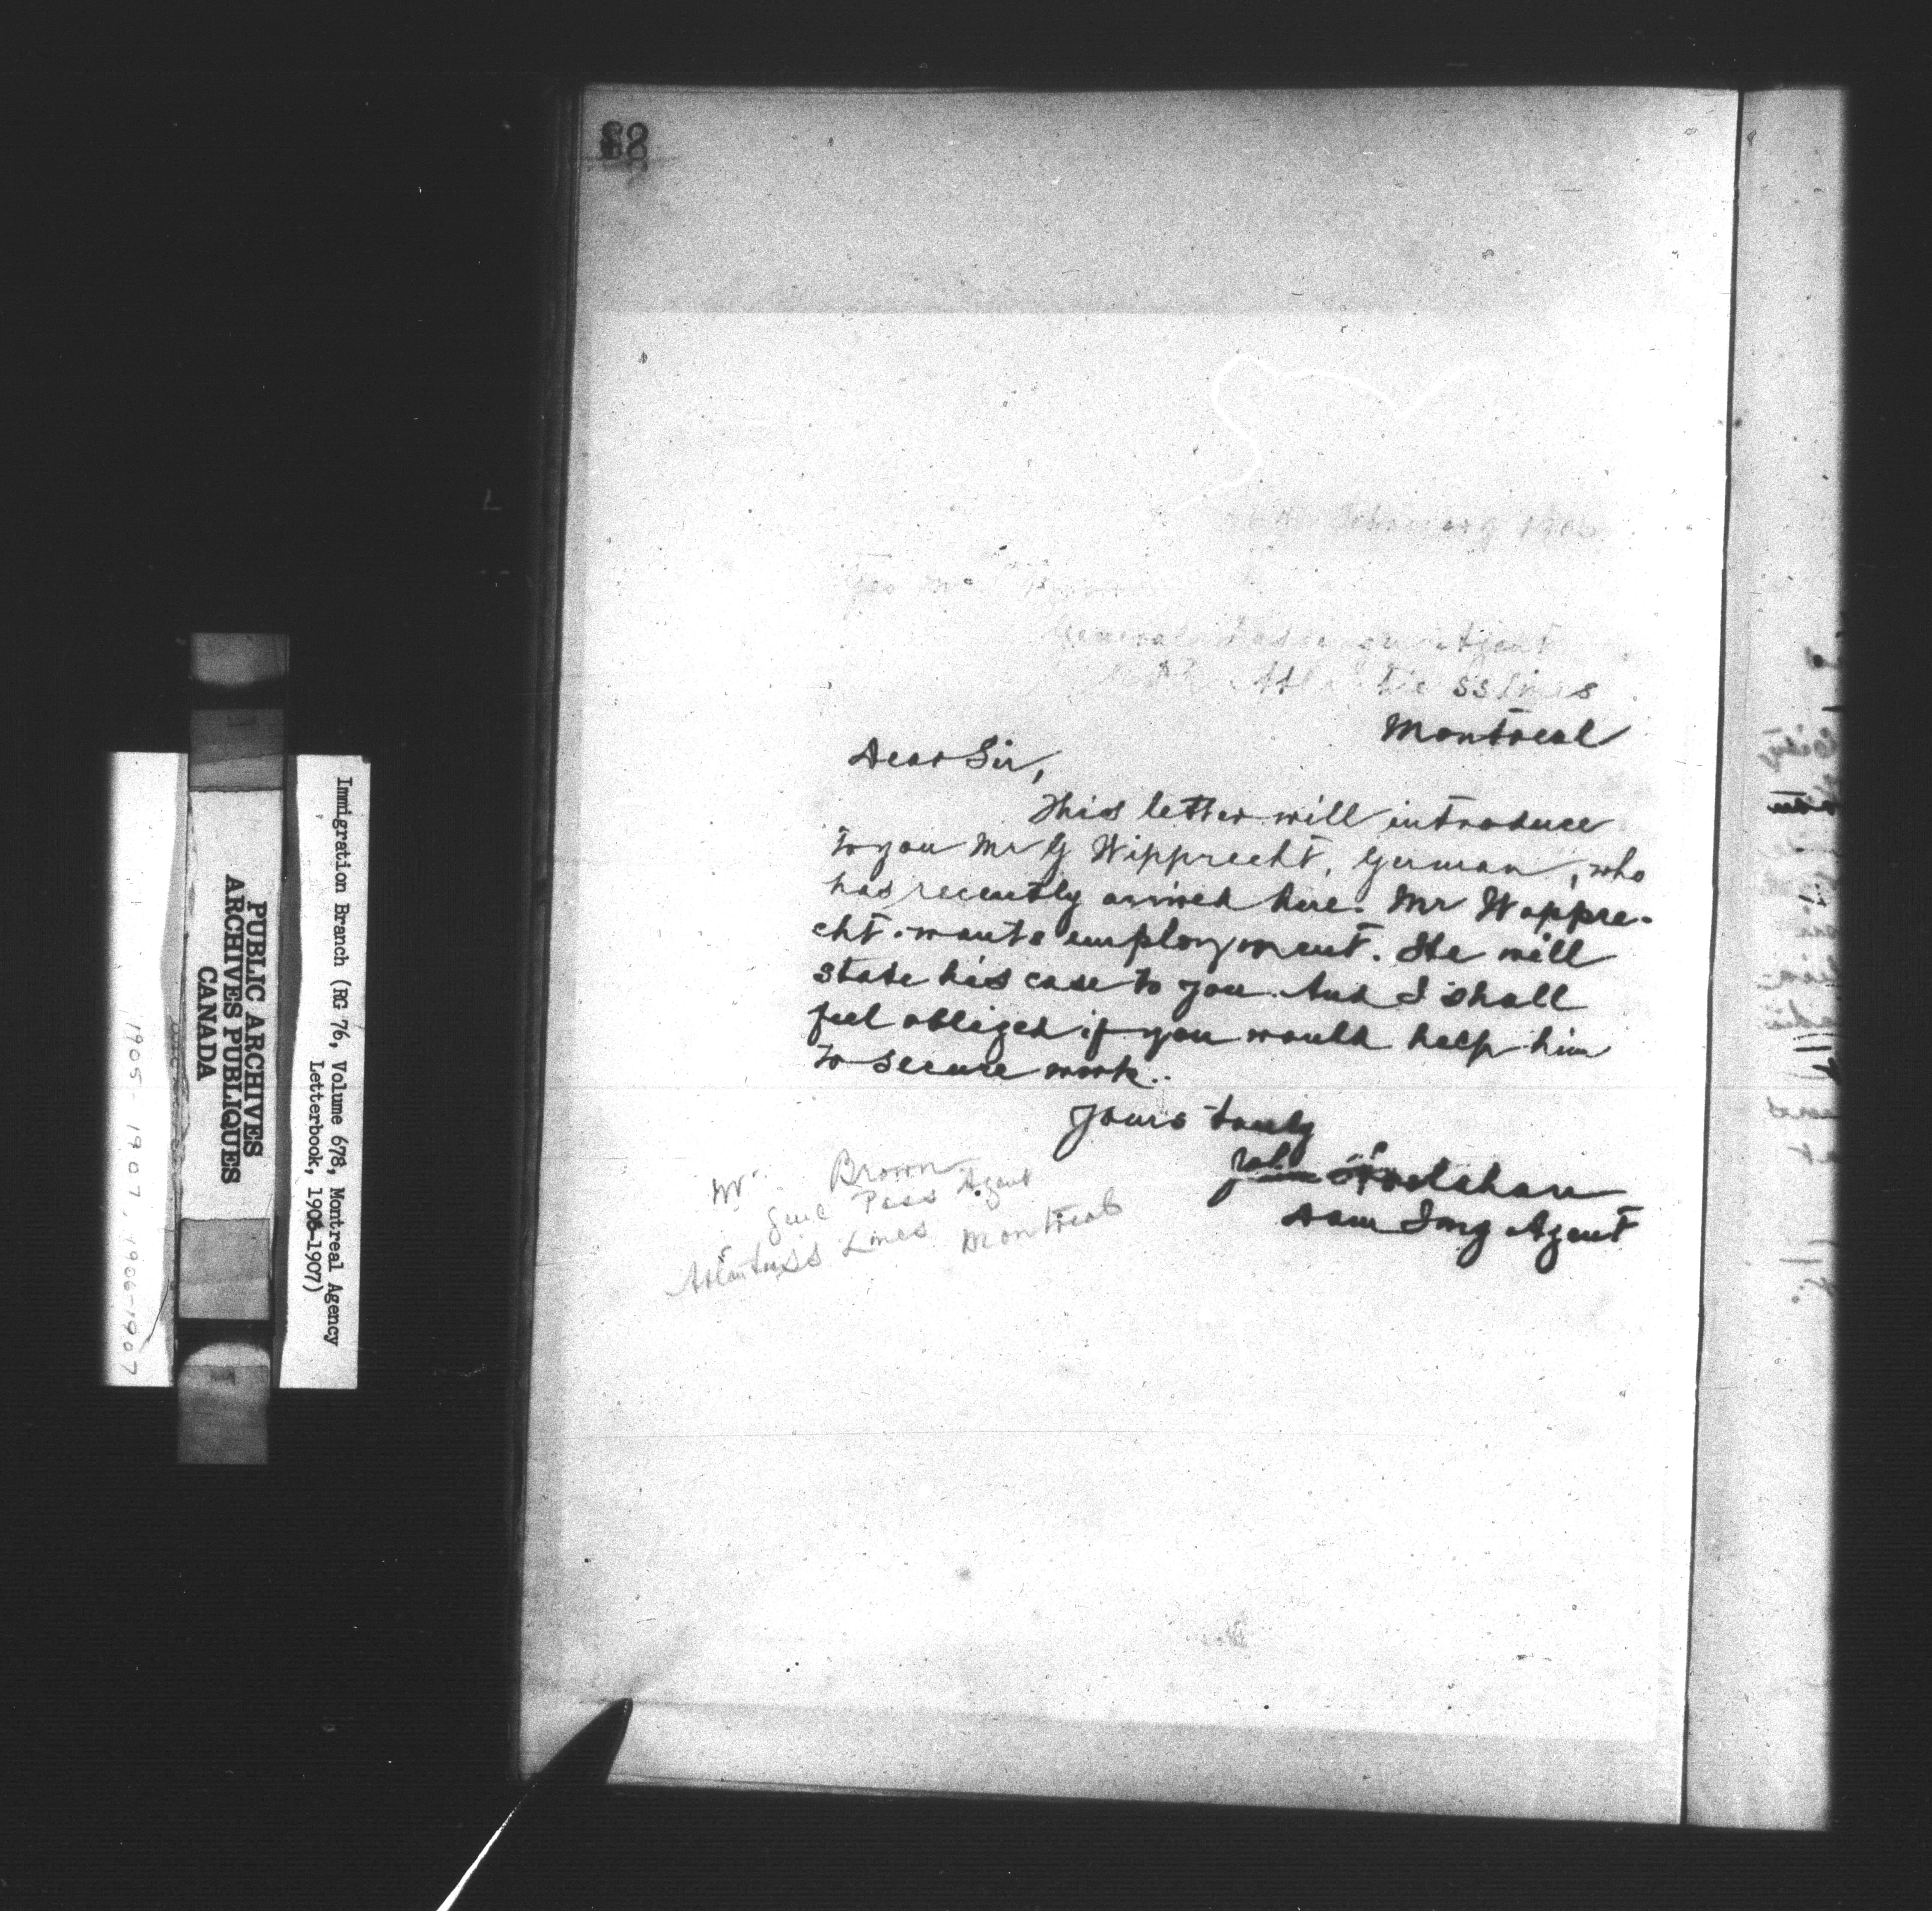 February 1906
Geo Mc Brown
General Passenger Agent
Atlantic SS Lines
Montreal
Dear Sir,
This letter will introduce
to you Mr G Wipprecht, German, who
has recently arrived here. Mr Wappre-
cht. wants employment. He will
state his case to you. And I shall
feel obliged if you would help him
to secure work.
Yours truly
John Hoolahan
Dom Img Agent
Mr. Brown
Genl Pass Agent
Atlantic SS Lines Montreal
Immigration Branch (RG 76, Volume 678, Montreal Agency
Letterbook, 1906-1907)
PUBLIC ARCHIVES
ARCHIVES PUBLIQUES
CANADA
1905-1907, 1906-1907